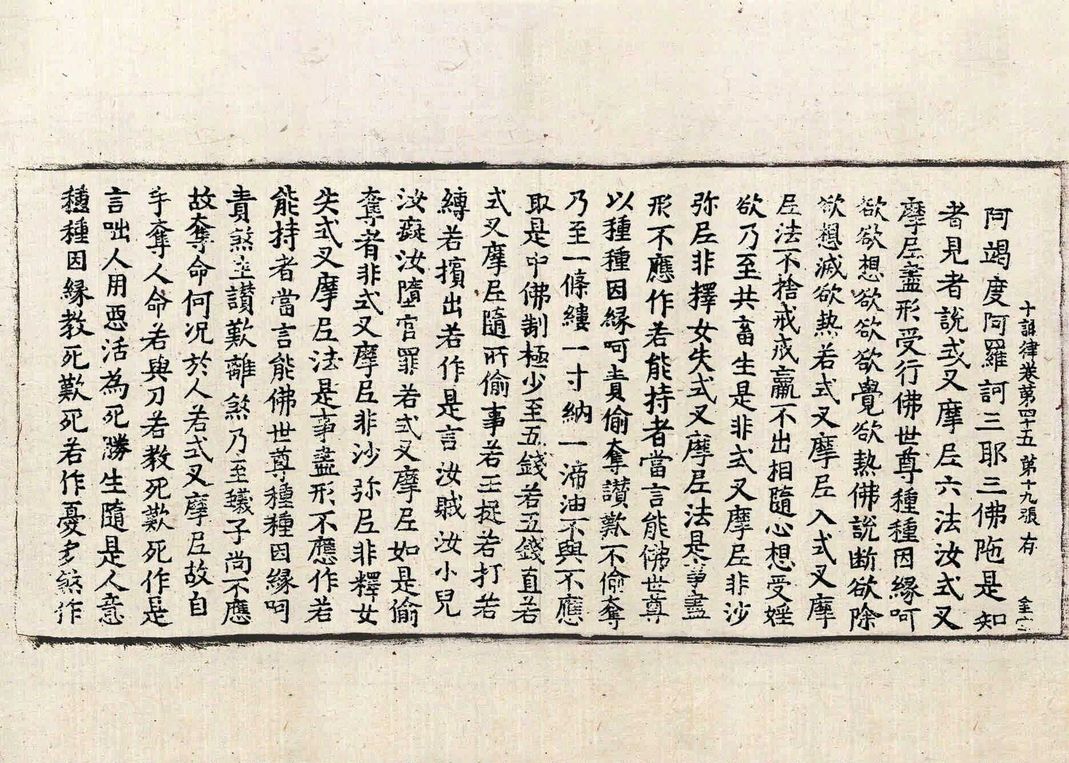 十誦律卷第四十五 第十九張 有
阿竭度阿羅訶三耶三佛陁是知
者見者說式叉摩尼六法汝式叉
摩尼盡形受行佛世尊種種因緣呵
欲欲想欲欲欲覺欲熱佛說断欲除
欲想滅欲熱若式叉摩尼入式叉摩
尼法不捨戒戒羸不出相隨心想受婬
欲乃至共畜生是非式叉摩尼非沙
弥尼非擇女失式叉摩尼法是事盡
形不應作若能持者當言能佛世尊
以種種因緣呵責偷奪讃歎不偷奪
乃至一條縷一寸納一渧油不與不應
取是中佛制極少至五錢若五錢直若
式叉摩尼隨所偷事若王捉若打若
縛若擯出若作是言汝賊汝小兒
汝癡汝墮官罪若式叉摩尼如是偷
奪者非式叉摩尼非沙弥尼非釋女
失式叉摩尼法是事盡形不應作若
能持者當言能佛世尊種種因緣呵
責煞生讃歎離煞乃至蟻子尚不應
故奪命何況於人若式叉摩尼故自
手奪人命若與刀若教死歎死作是
言咄人用惡活為死勝生隨是人意
種種因緣教死歎死若作憂多煞作